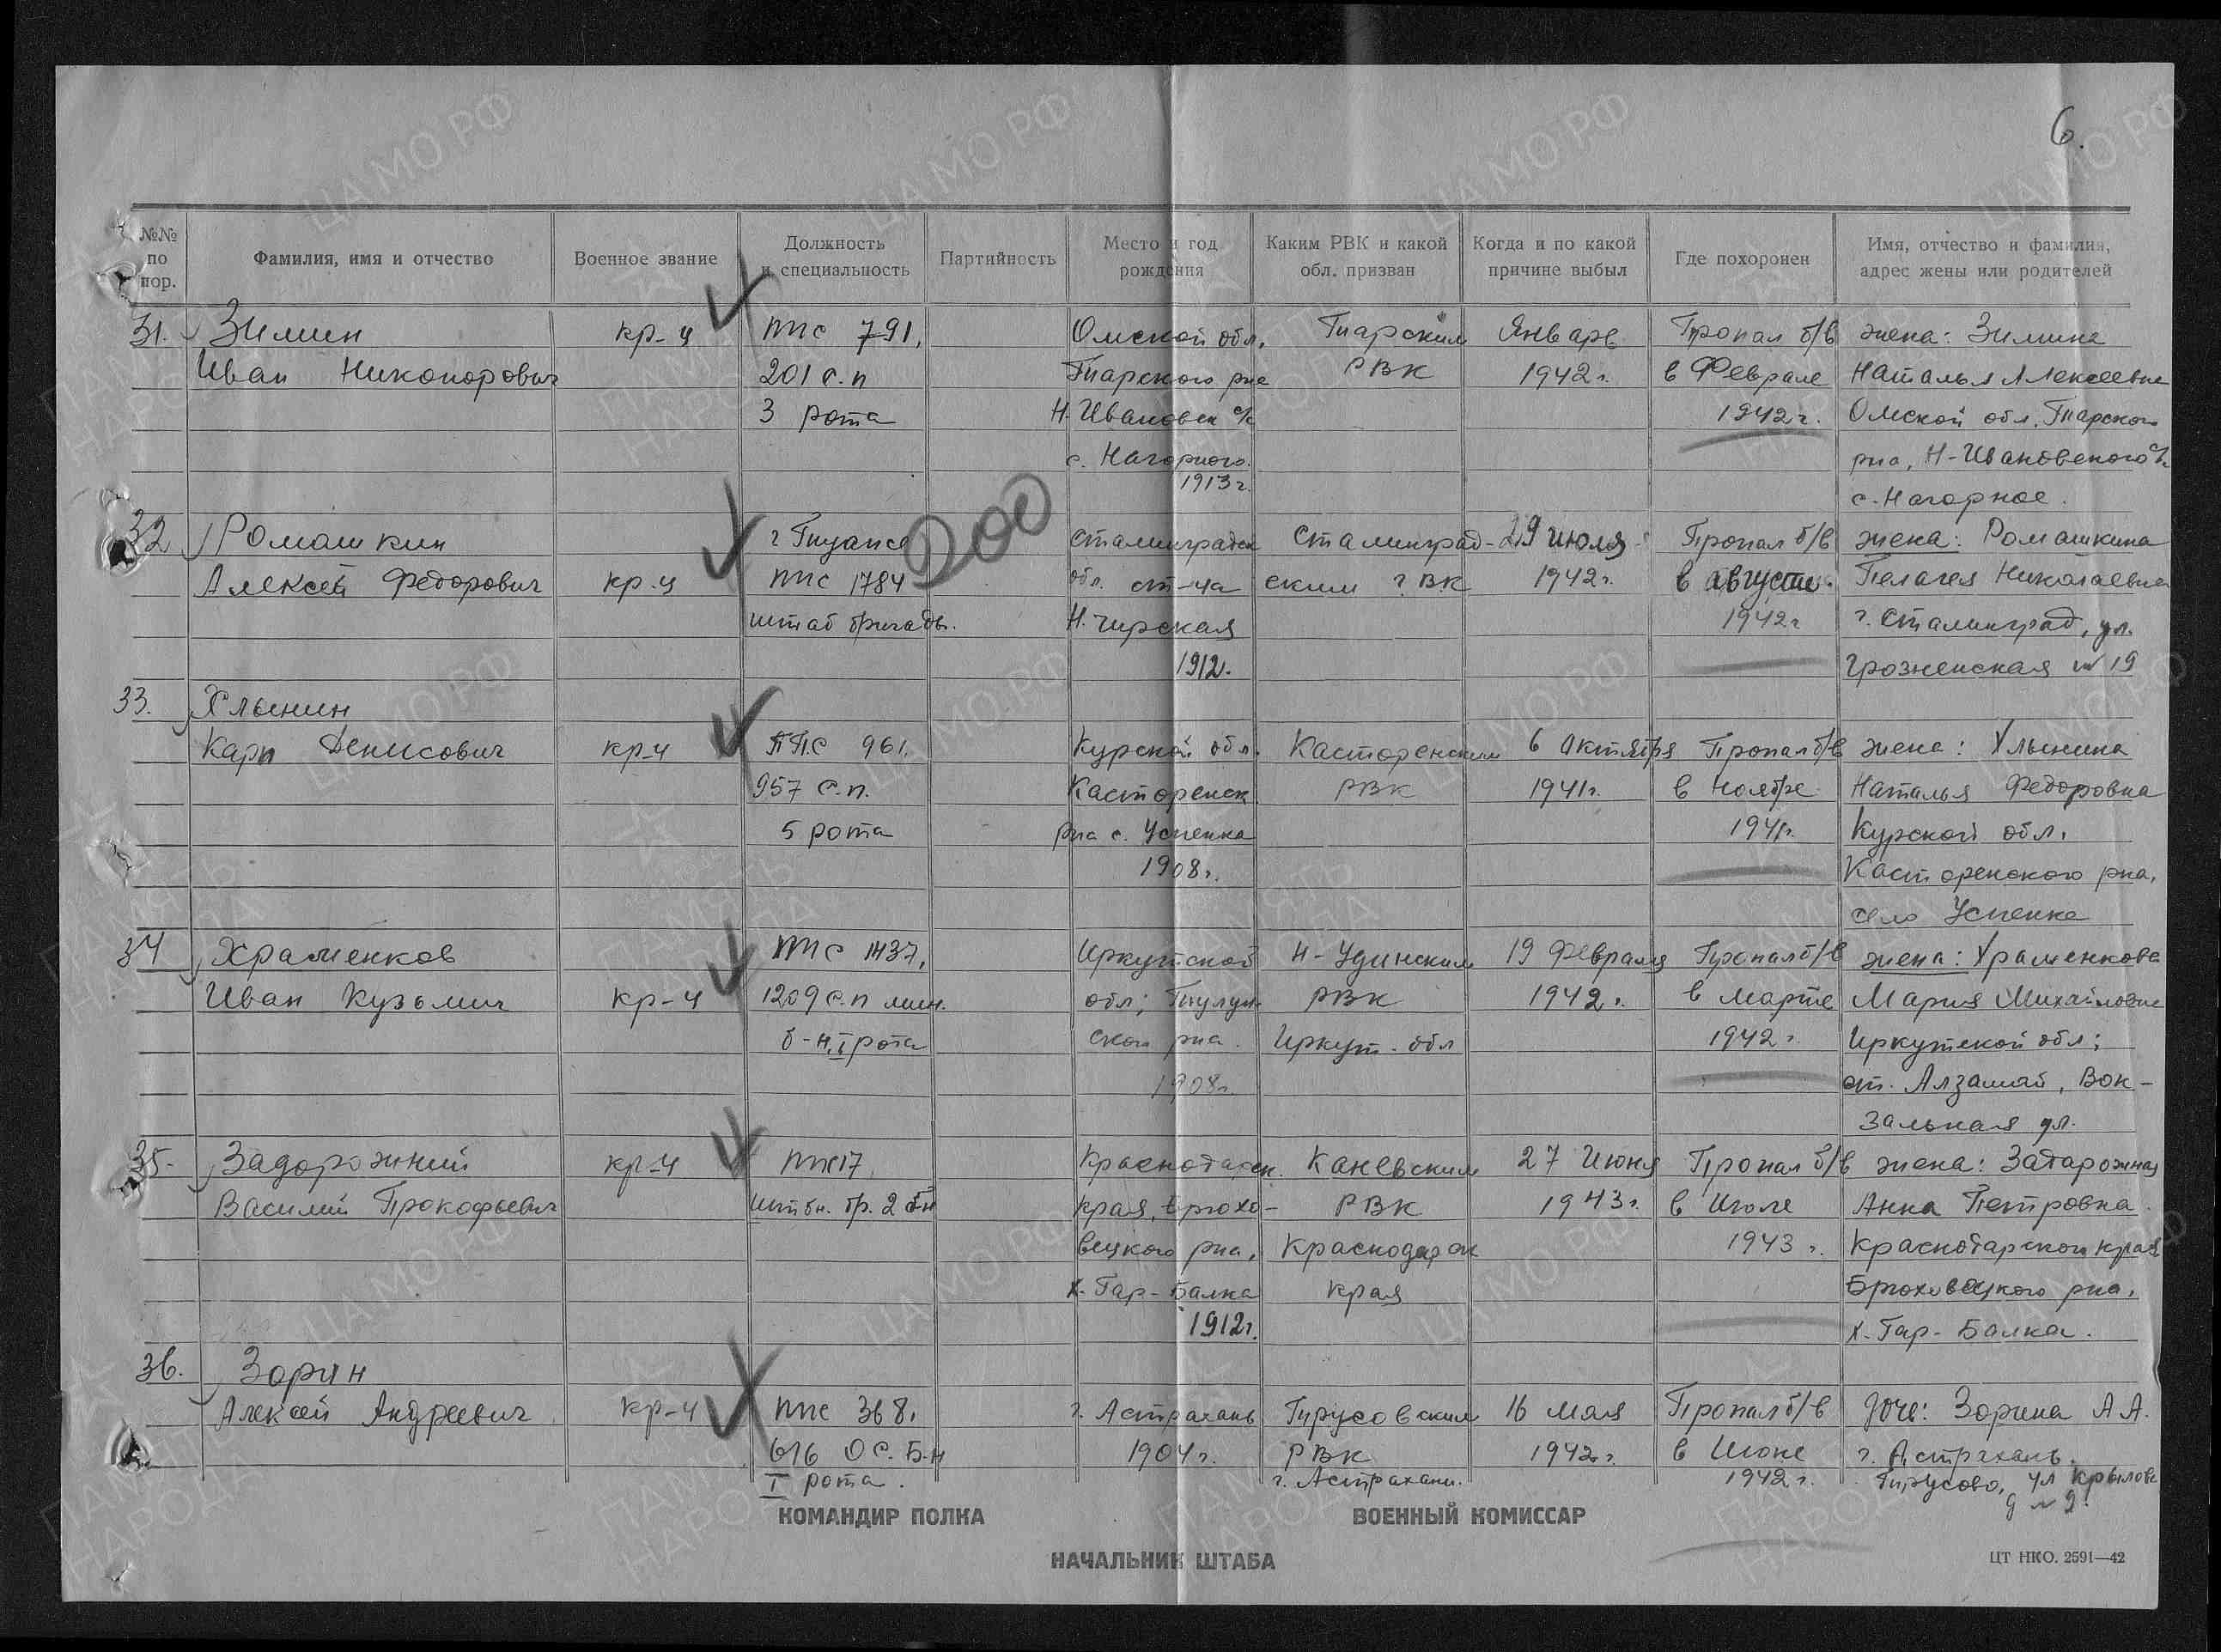 6.
№№ по пор.
Фамилия, имя и отчество
Военное звание
Должность и специальность
Партийность
Место и год рождения
Каким РВК и какой обл. призван
Когда и по какой причине выбыл
Где похоронен
Имя, отчество и фамилия, адрес жены или родителей
31. Зимин кр-ц ппс 791, Омской обл. Тарским Январь Пропал б/в жена: Зимина
Иван Никонорович 201 с.п Тарского рна РВК 1942г. в Феврале Наталья Алексеевна
3 рота Н. Ивановск с/с 1942г. Омской обл. Тарского
с. Нагорного. рна, Н-Ивановского с/с
1913г. с. Нагорное.
200
32 Ромашкин г Туапсе Сталинградск Сталинград- 29 июля Пропал б/в жена: Ромашкина
Алексей Федорович кр-ц ппс 1784 обл. ст-ца ским г.В.К 1942г. в августе. Пелагея Николаевна
штаб бригады. Н. Чирская 1942г г. Сталинград, ул.
1912. Грозненская № 19
33. Хлынин
Карп Денисович кр-ц ППС 961. Курской обл. Касторенским 6 Октября Пропал б/в жена: Хлынина
957 с.п. Касторенск РВК 1941г. в Ноябре Наталья Федоровна
5 рота рна с. Успенка 1941г. Курской обл.
1908г. Касторенского рна,
село Успенка
34 Храменков ппс 1437, Иркутской Н-Удинским 19 Февраля Пропал б/в жена: Храменкова
Иван Кузьмич кр-ц 1209 с.п мин. обл; Тулун- РВК 1942г. в марте Мария Михайловна
б-н, I рота ской рна. Иркут. обл 1942г. Иркутской обл;
1908г. ст. Алзамай, Вок-
зальная ул.
35. Задорожний кр-ц ппс 17 Краснодарск. Каневским 27 Июня Пропал б/в жена: Задарожная
Василий Прокофьевич бр. 2 края, Брюхо- РВК 1943г. в Июле Анна Петровна
вецкого рна, Краснодарск 1943г. Краснодарского края
х. Гар-Балка края Брюховецкого рна,
1912г. х. Гар-Балка.
36. Зорин
Алексей Андреевич кр-ц ппс 368, г. Астрахань Трусовским 16 мая Пропал б/в дочь: Зорина А А.
616 О С. Б-н 1904г. РВК 1942г. в Июне г. Астрахань.
I рота. г. Астрахани. 1942г. Трусово, ул Крылова
д № 9.
КОМАНДИР ПОЛКА
ВОЕННЫЙ КОМИССАР
НАЧАЛЬНИК ШТАБА
ЦТ НКО. 2591—42
ЦАМО РФ
ПАМЯТЬ НАРОДА